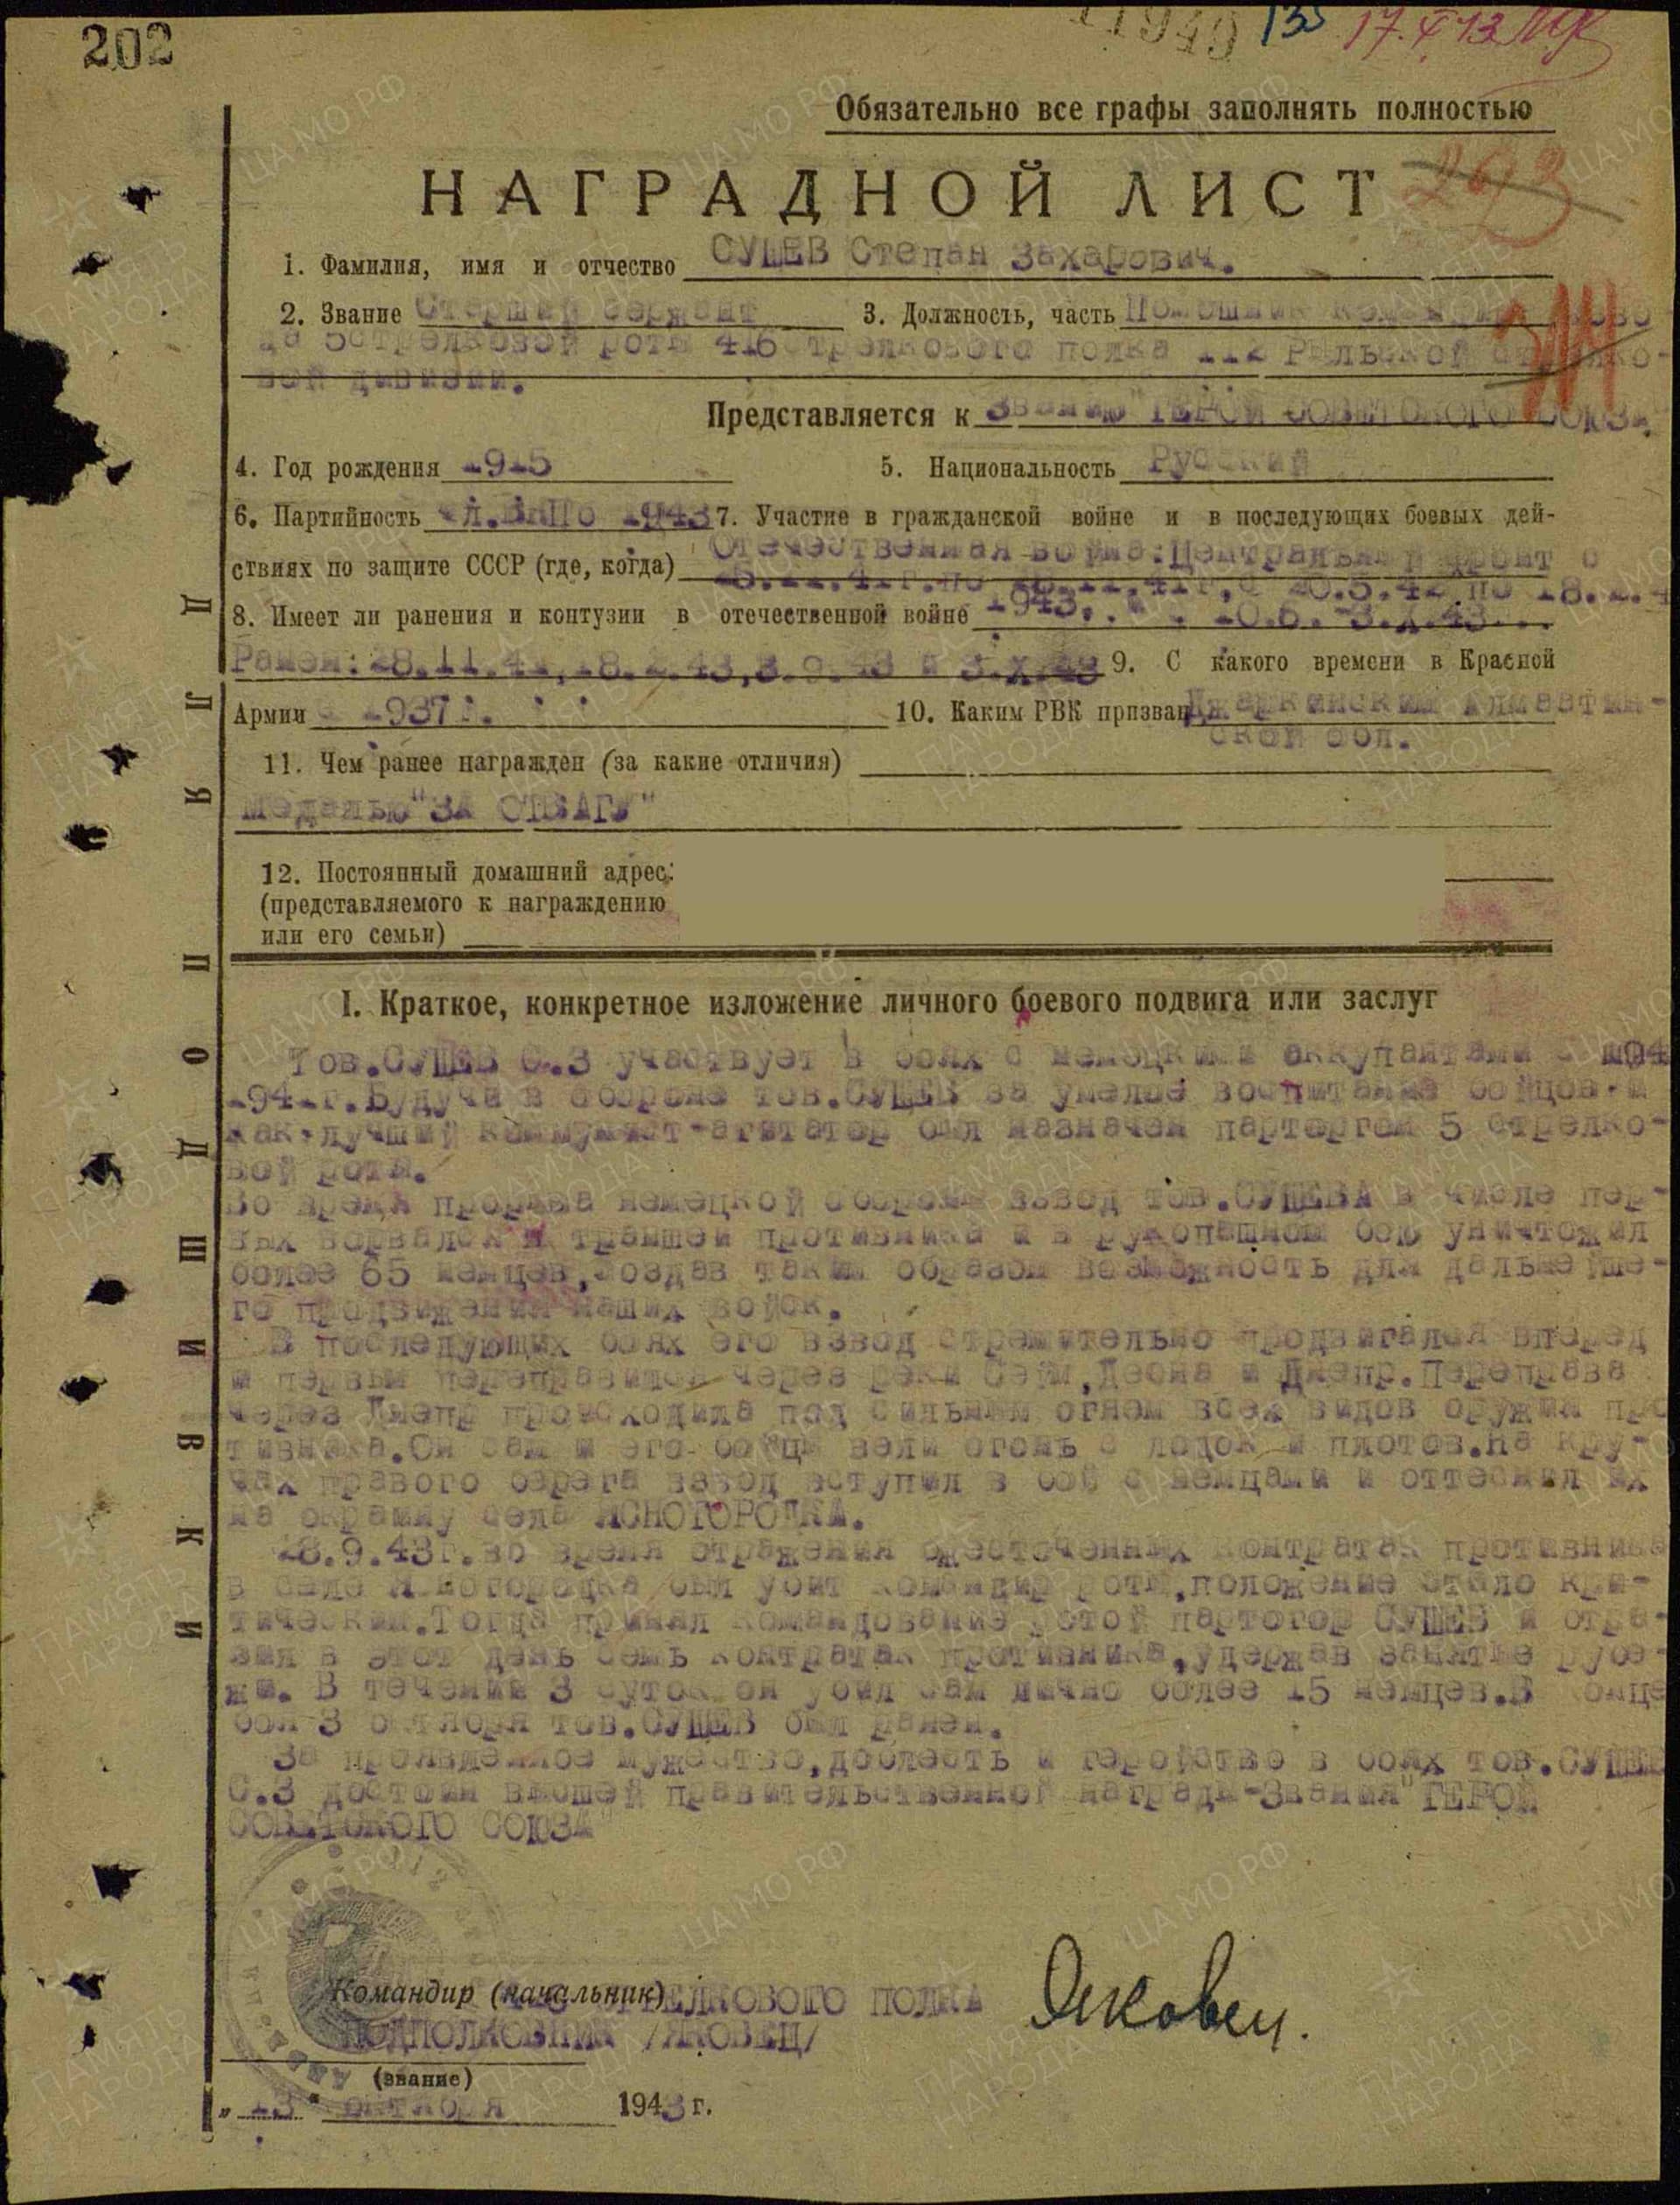 202
17.X 43
Обязательно все графы заполнять полностью
НАГРАДНОЙ ЛИСТ
293
1. Фамилия, имя и отчество СУШЕВ Степан Захарович.
2. Звание Старший сержант 3. Должность, часть Помошник командира взво
да 5 стрелковой роты 416 стрелкового полка 112 Рыльской стрелко-
вой дивизии.
Представляется к Званию "ГЕРОЙ СОВЕТСКОГО СОЮЗА"
4. Год рождения 1915 5. Национальность Русский
6. Партийность 1943 7. Участие в гражданской войне и в последующих боевых дей-
ствиях по защите СССР (где, когда) Отечественная война: Центральный фронт с
8. Имеет ли ранения и контузии в отечественной войне 1943.
Ранен: 28.11.41, 18.2.43, 3.9.43 и 3.X.43 9. С какого времени в Красной
Армии с 1937 г. 10. Каким РВК призван Алмаатин-
ской обл.
11. Чем ранее награжден (за какие отличия)
Медалью "ЗА ОТВАГУ"
12. Постоянный домашний адрес:
(представляемого к награждению
или его семьи)
ДЛЯ ПОДШИВКИ
I. Краткое, конкретное изложение личного боевого подвига или заслуг
Тов.СУШЕВ С.З участвует в боях с немецкими аккупантами с
1941г.Будучи в обороне тов.СУШЕВ за умелое воспитание бойцов и
как лучший коммунист-агитатор был назначен парторгом 5 стрелко-
вой роты.
Во время прорыва немецкой обороны взвод тов.СУШЕВА в числе пер-
вых ворвался в траншеи противника и в рукопашном бою уничтожил
более 65 немцев,создав таким образом возможность для дальнейше-
го продвижения наших войск.
В последующих боях его взвод стремительно продвигался вперед
и первым переправился через реки Сейм,Десна и Днепр.Переправа
через Днепр происходила под сильным огнем всех видов оружия про
тивника.Он сам и его бойцы вели огонь с лодок и плотов.На кру-
чах правого берега взвод вступил в бой с немцами и оттеснил их
на окраину села ЯСНОГОРОДКА.
28.9.43г.во время отражения ожесточенных контратак противника
в селе Ясногородка был убит командир роты,положение стало кри-
тическим.Тогда принял командование ротой партогор СУШЕВ и отра-
зил в этот день семь контратак противника,удержав занятые рубе-
жи. В течении 3 суток он убил сам лично более 15 немцев.В конце
боя 3 октября тов.СУШЕВ был ранен.
За проявленное мужество,доблесть и геройство в боях тов.СУШЕВ
С.З достоин высшей правительственной награды-Звания "ГЕРОЙ
СОВЕТСКОГО СОЮЗА"
Командир (начальник) СТРЕЛКОВОГО ПОЛКА
ПОДПОЛКОВНИК /ЯКОВЕЦ/ Яковец.
(звание)
„13" октября 1943 г.